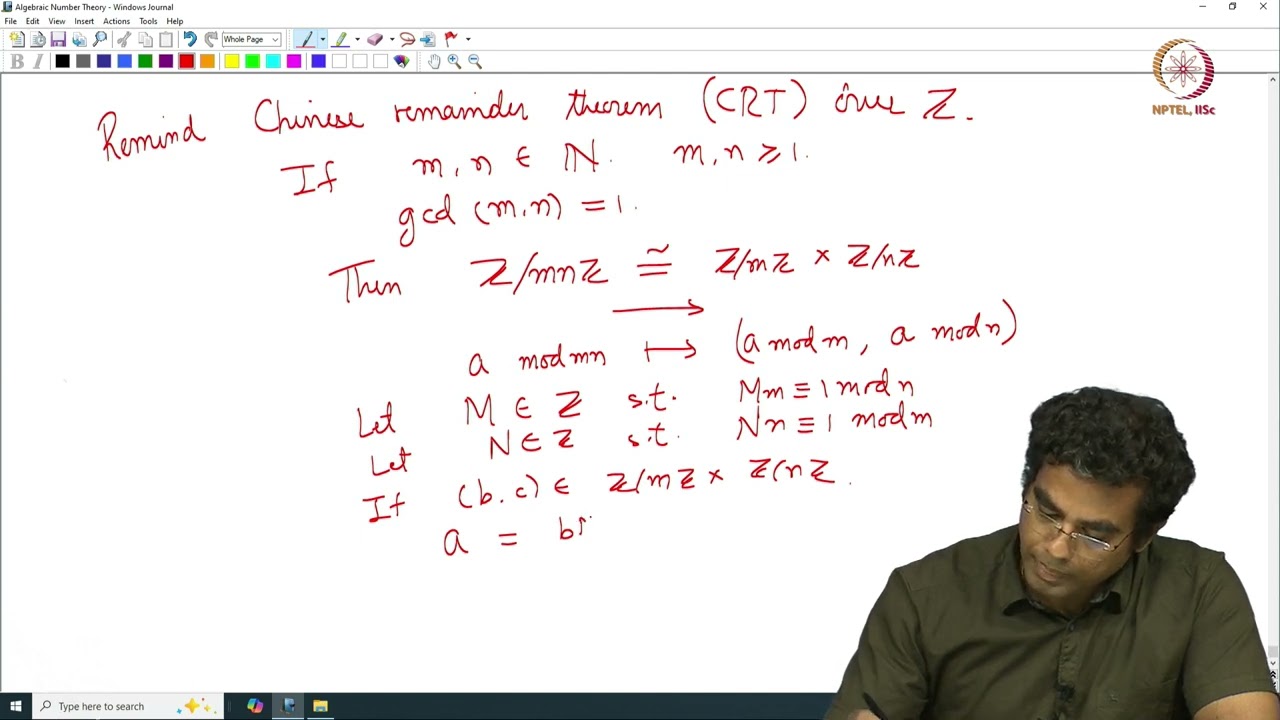 Algebraic Number Theory - Windows Journal
File Edit View Insert Actions Tools Help
Whole Page
B I
NPTEL, IISc
Remind Chinese remainder theorem (CRT) over ℤ.
If m, n ∈ ℕ. m, n ≥ 1.
gcd (m, n) = 1.
Then ℤ/mnℤ ≅ ℤ/mℤ × ℤ/nℤ
⟶
a mod mn ⟼ (a mod m, a mod n)
Let M ∈ ℤ s.t. Mm ≡ 1 mod n
Let N ∈ ℤ s.t. Nn ≡ 1 mod m
If (b, c) ∈ ℤ/mℤ × ℤ/nℤ.
a = b
Type here to search